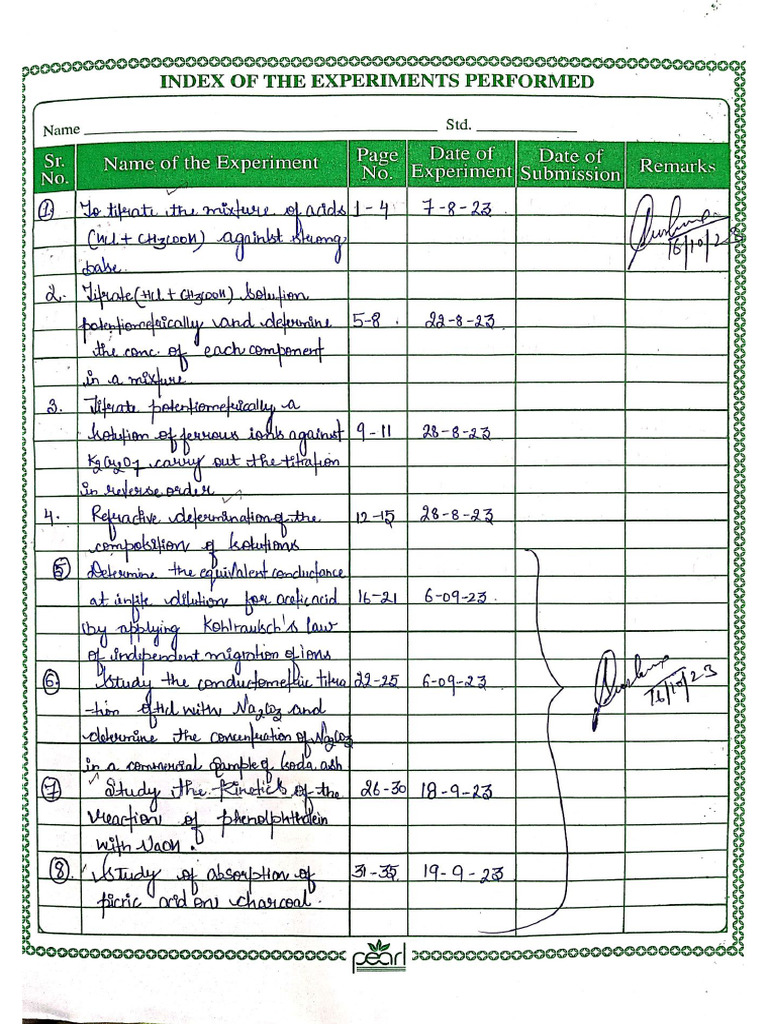 INDEX OF THE EXPERIMENTS PERFORMED
Name Std.
Sr. No. Name of the Experiment Page No. Date of Experiment Date of Submission Remarks
1. To titrate the mixture of acids 1-4 7-8-23
(HCl + CH3COOH) against strong 16/10/23
base.
2. Titrate (HCl + CH3COOH) solution
potentiometrically and determine 5-8. 22-8-23
the conc. of each component
in a mixture
3. Titrate potentiometrically a
solution of ferrous ions against 9-11 28-8-23
K2Cr2O7 carry out the titration
in reverse order
4. Refractive determination of the 12-15 28-8-23
composition of solutions
5 Determine the equivalent conductance
at infite dilution for acetic acid 16-21 6-09-23.
by applying Kohlrausch's law
of independent migration of ions
6. Study the conductometric titra 22-25 6-09-23 16/10/23
-tion of HCl with Na2CO3 and
determine the concentration of Na2CO3
in a commercial sample of soda ash
7 Study the Kinetics of the 26-30 18-9-23
reaction of phenolphthlein
with NaOH.
8. Study of absorption of 31-35 19-9-23
picric acid on charcoal.
pearl